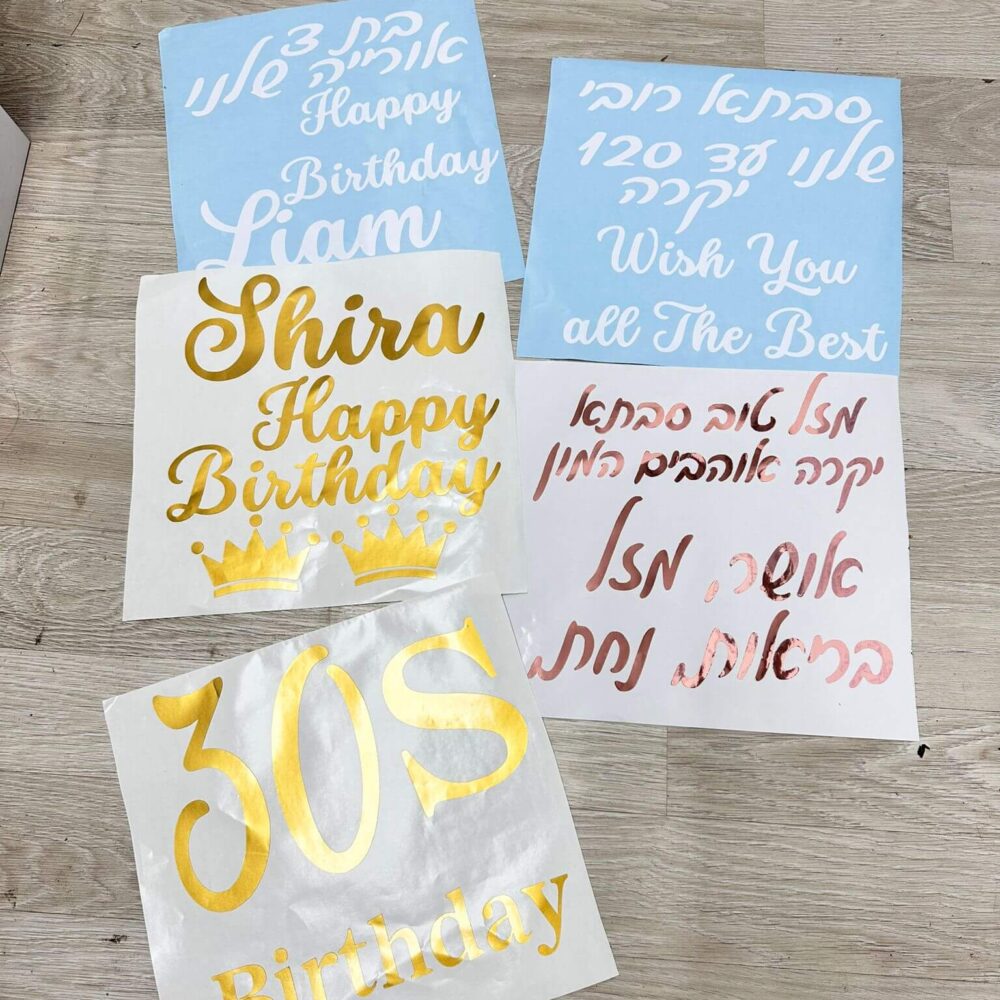 בת 3
אורייה שלנו
Happy
Birthday
Liam
סבתא רובי
שלנו עד 120
יקרה
Wish You
all The Best
Shira
Happy
Birthday
מזל טוב סבתא
יקרה אוהבים המון
אושר, מזל
בריאות, נחת
30S
Birthday